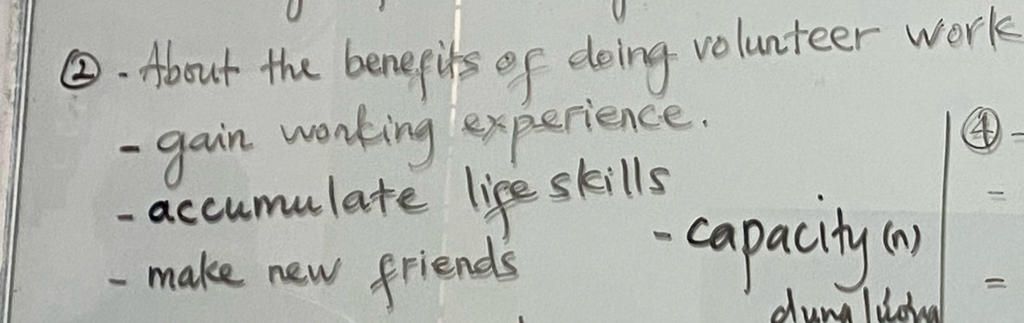 ② - About the benefits of doing volunteer work
- gain working experience.
- accumulate life skills
- make new friends
- capacity (n)
④ -
=
=